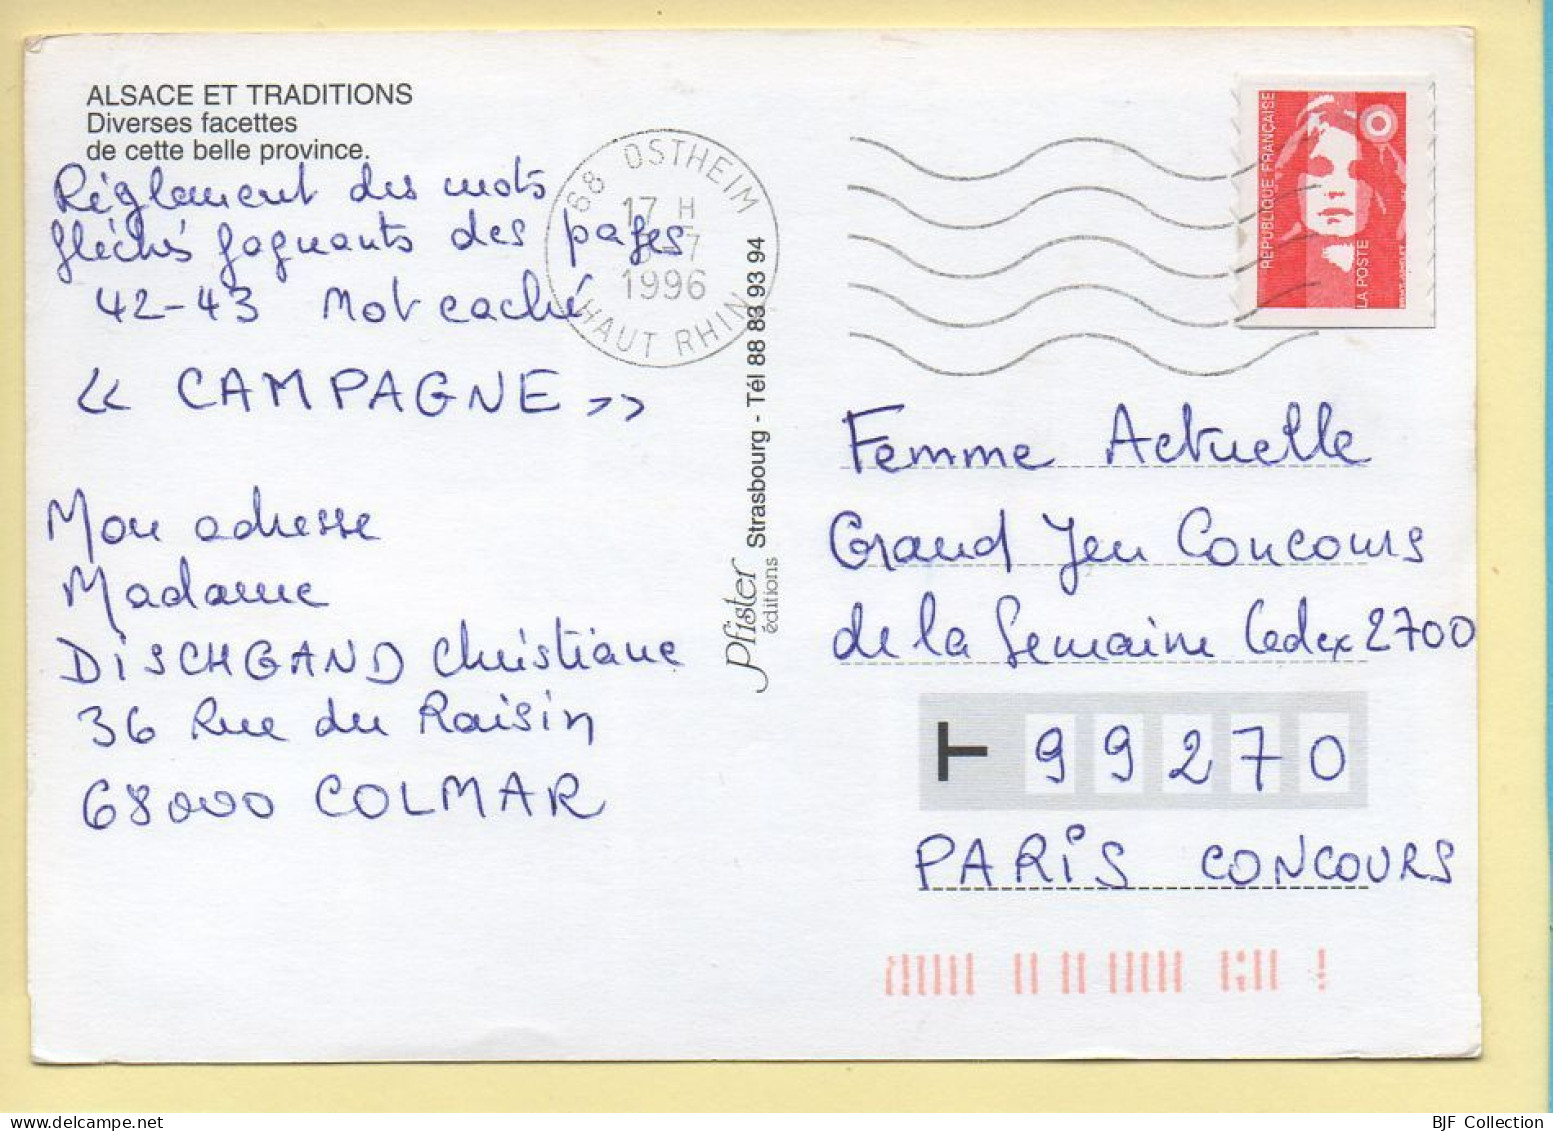 ALSACE ET TRADITIONS
Diverses facettes
de cette belle province.
Réglement des mots
fléchés gagnants des pages
42-43 Mot caché
<< CAMPAGNE >>
Mon adresse
Madame
DISCHGAND Christiane
36 Rue du Raisin
68000 COLMAR
68 OSTHEIM
17 H
-7
1996
HAUT RHIN
Pfister
éditions
Strasbourg - Tél 88 83 93 94
REPUBLIQUE FRANÇAISE
LA POSTE
Femme Actuelle
Grand Jeu Concours
de la Semaine Cedex 2700
T 99270
PARIS CONCOURS
BJF Collection